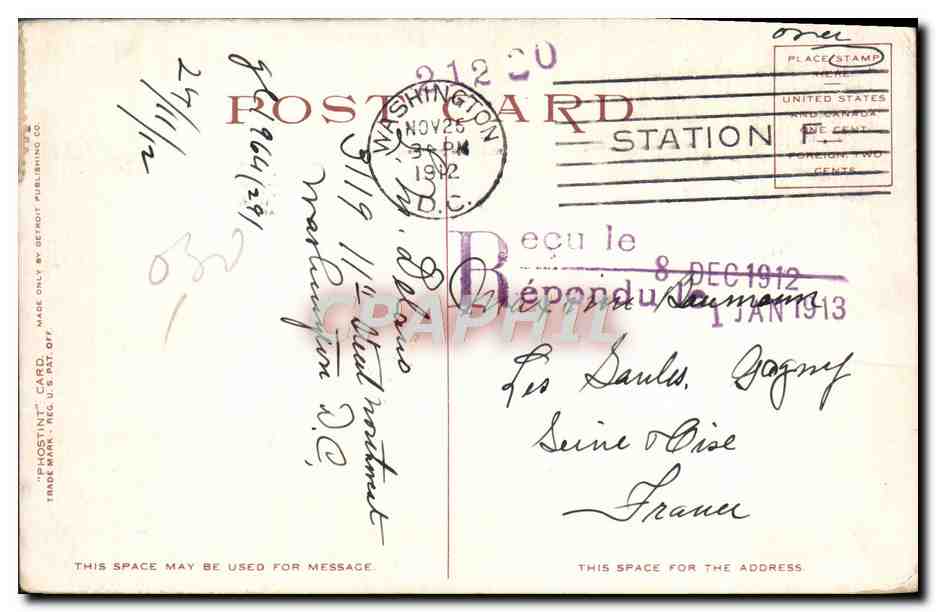 over
PLACE STAMP
HERE
UNITED STATES
AND CANADA
ONE CENT
FOREIGN, TWO
CENTS
POST CARD
WASHINGTON
NOV 26
PM
1912
D.C.
STATION F.
Reçu le
8 DEC 1912
Répondu le
1 JAN 1913
Maxime Baumann
Les Saules, Gagny
Seine & Oise
France
24/11/12
3119 11th Street northwest
Washington D.C.
CPARHIL
"PHOSTINT" CARD. MADE ONLY BY DETROIT PUBLISHING CO.
TRADE MARK - REG. U.S. PAT. OFF.
THIS SPACE MAY BE USED FOR MESSAGE.
THIS SPACE FOR THE ADDRESS.